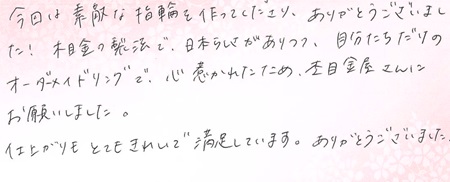 今回は素敵な指輪を作ってくださり、ありがとうございまし
た！木目金の製法で、日本らしさがありつつ、自分たちだけの
オーダーメイドリングで、心惹かれたため、杢目金屋さんに
お願いしました。
仕上がりもとてもきれいで満足しています。ありがとうございました